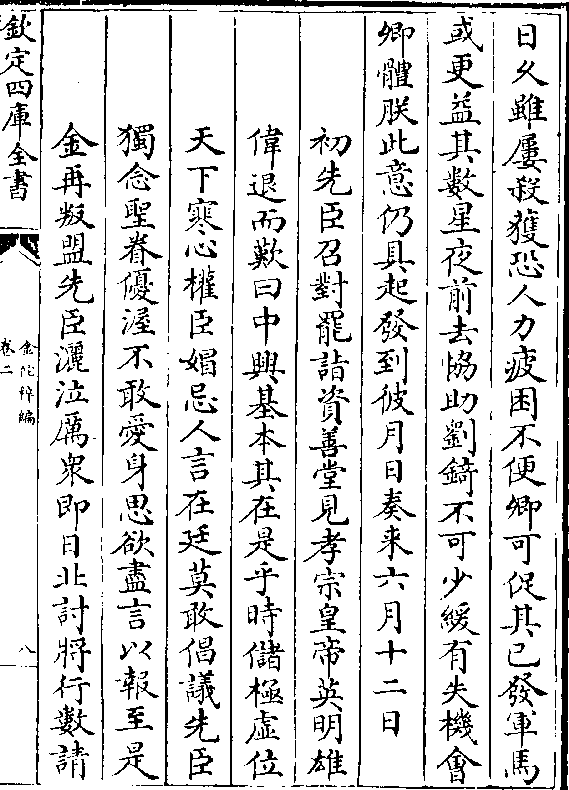 日久雖屢殺獲恐人力疲困不便卿可促其已發軍馬
或更益其數星夜前去恊助劉錡不可少緩有失機會
卿體朕此意仍具起發到彼月日奏来六月十二日
初先臣召對罷詣資善堂見孝宗皇帝英明雄
偉退而歎曰中興基本其在是乎時儲極虚位
天下寒心權臣媢忌人言在廷莫敢倡議先臣
獨念聖眷優渥不敢愛身思欲盡言以報至是
金再叛盟先臣灑泣厲衆即日北討將行數請
欽定四庫全書
金佗稡編
卷二
八